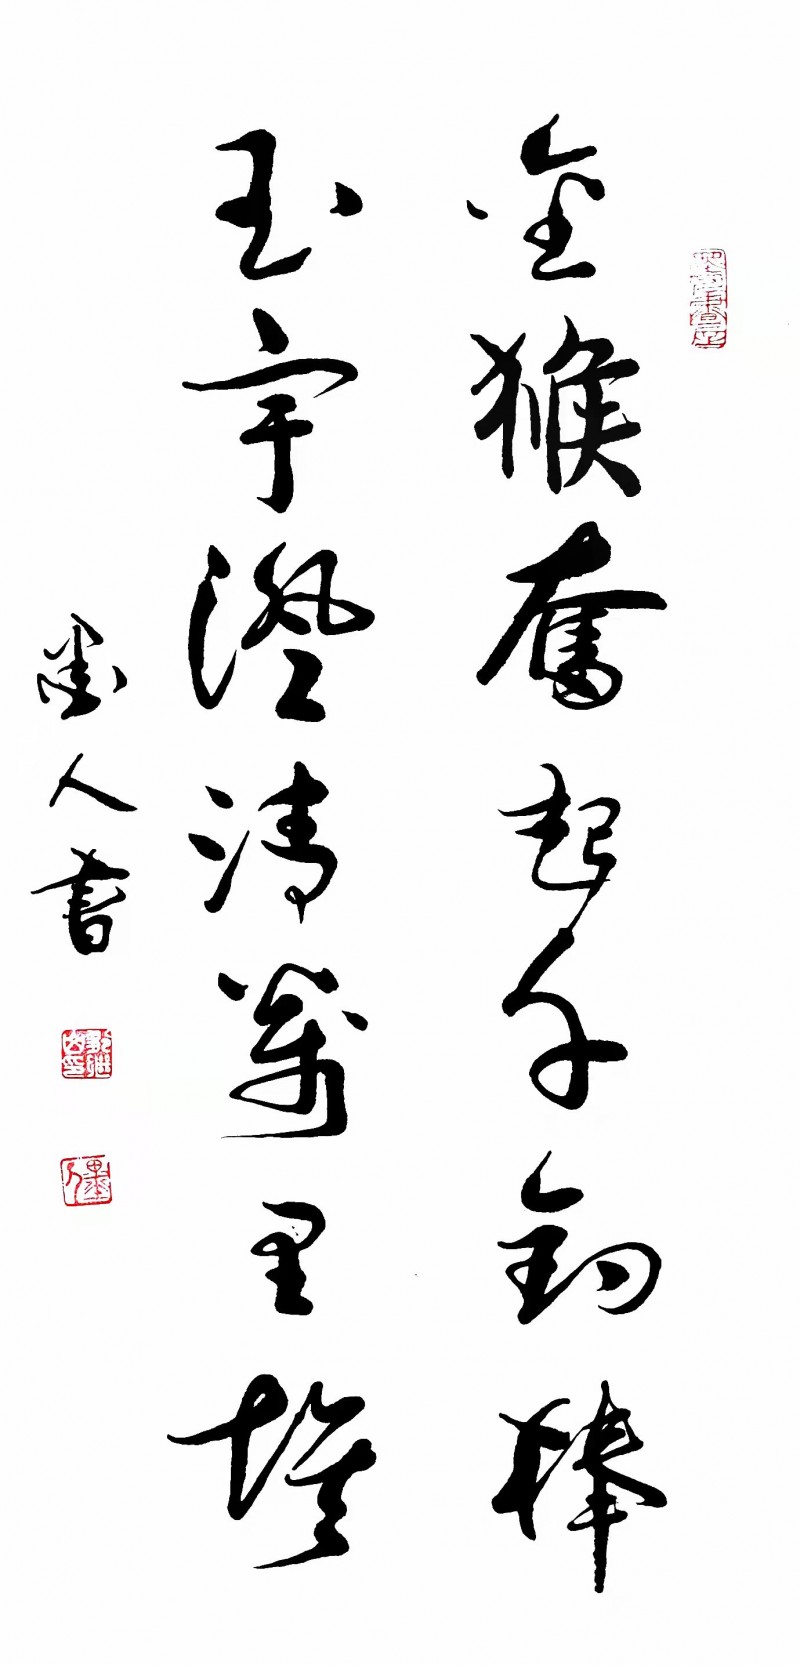 金猴奮起千鈞棒
玉宇澄清萬里埃
墨人書
墨人